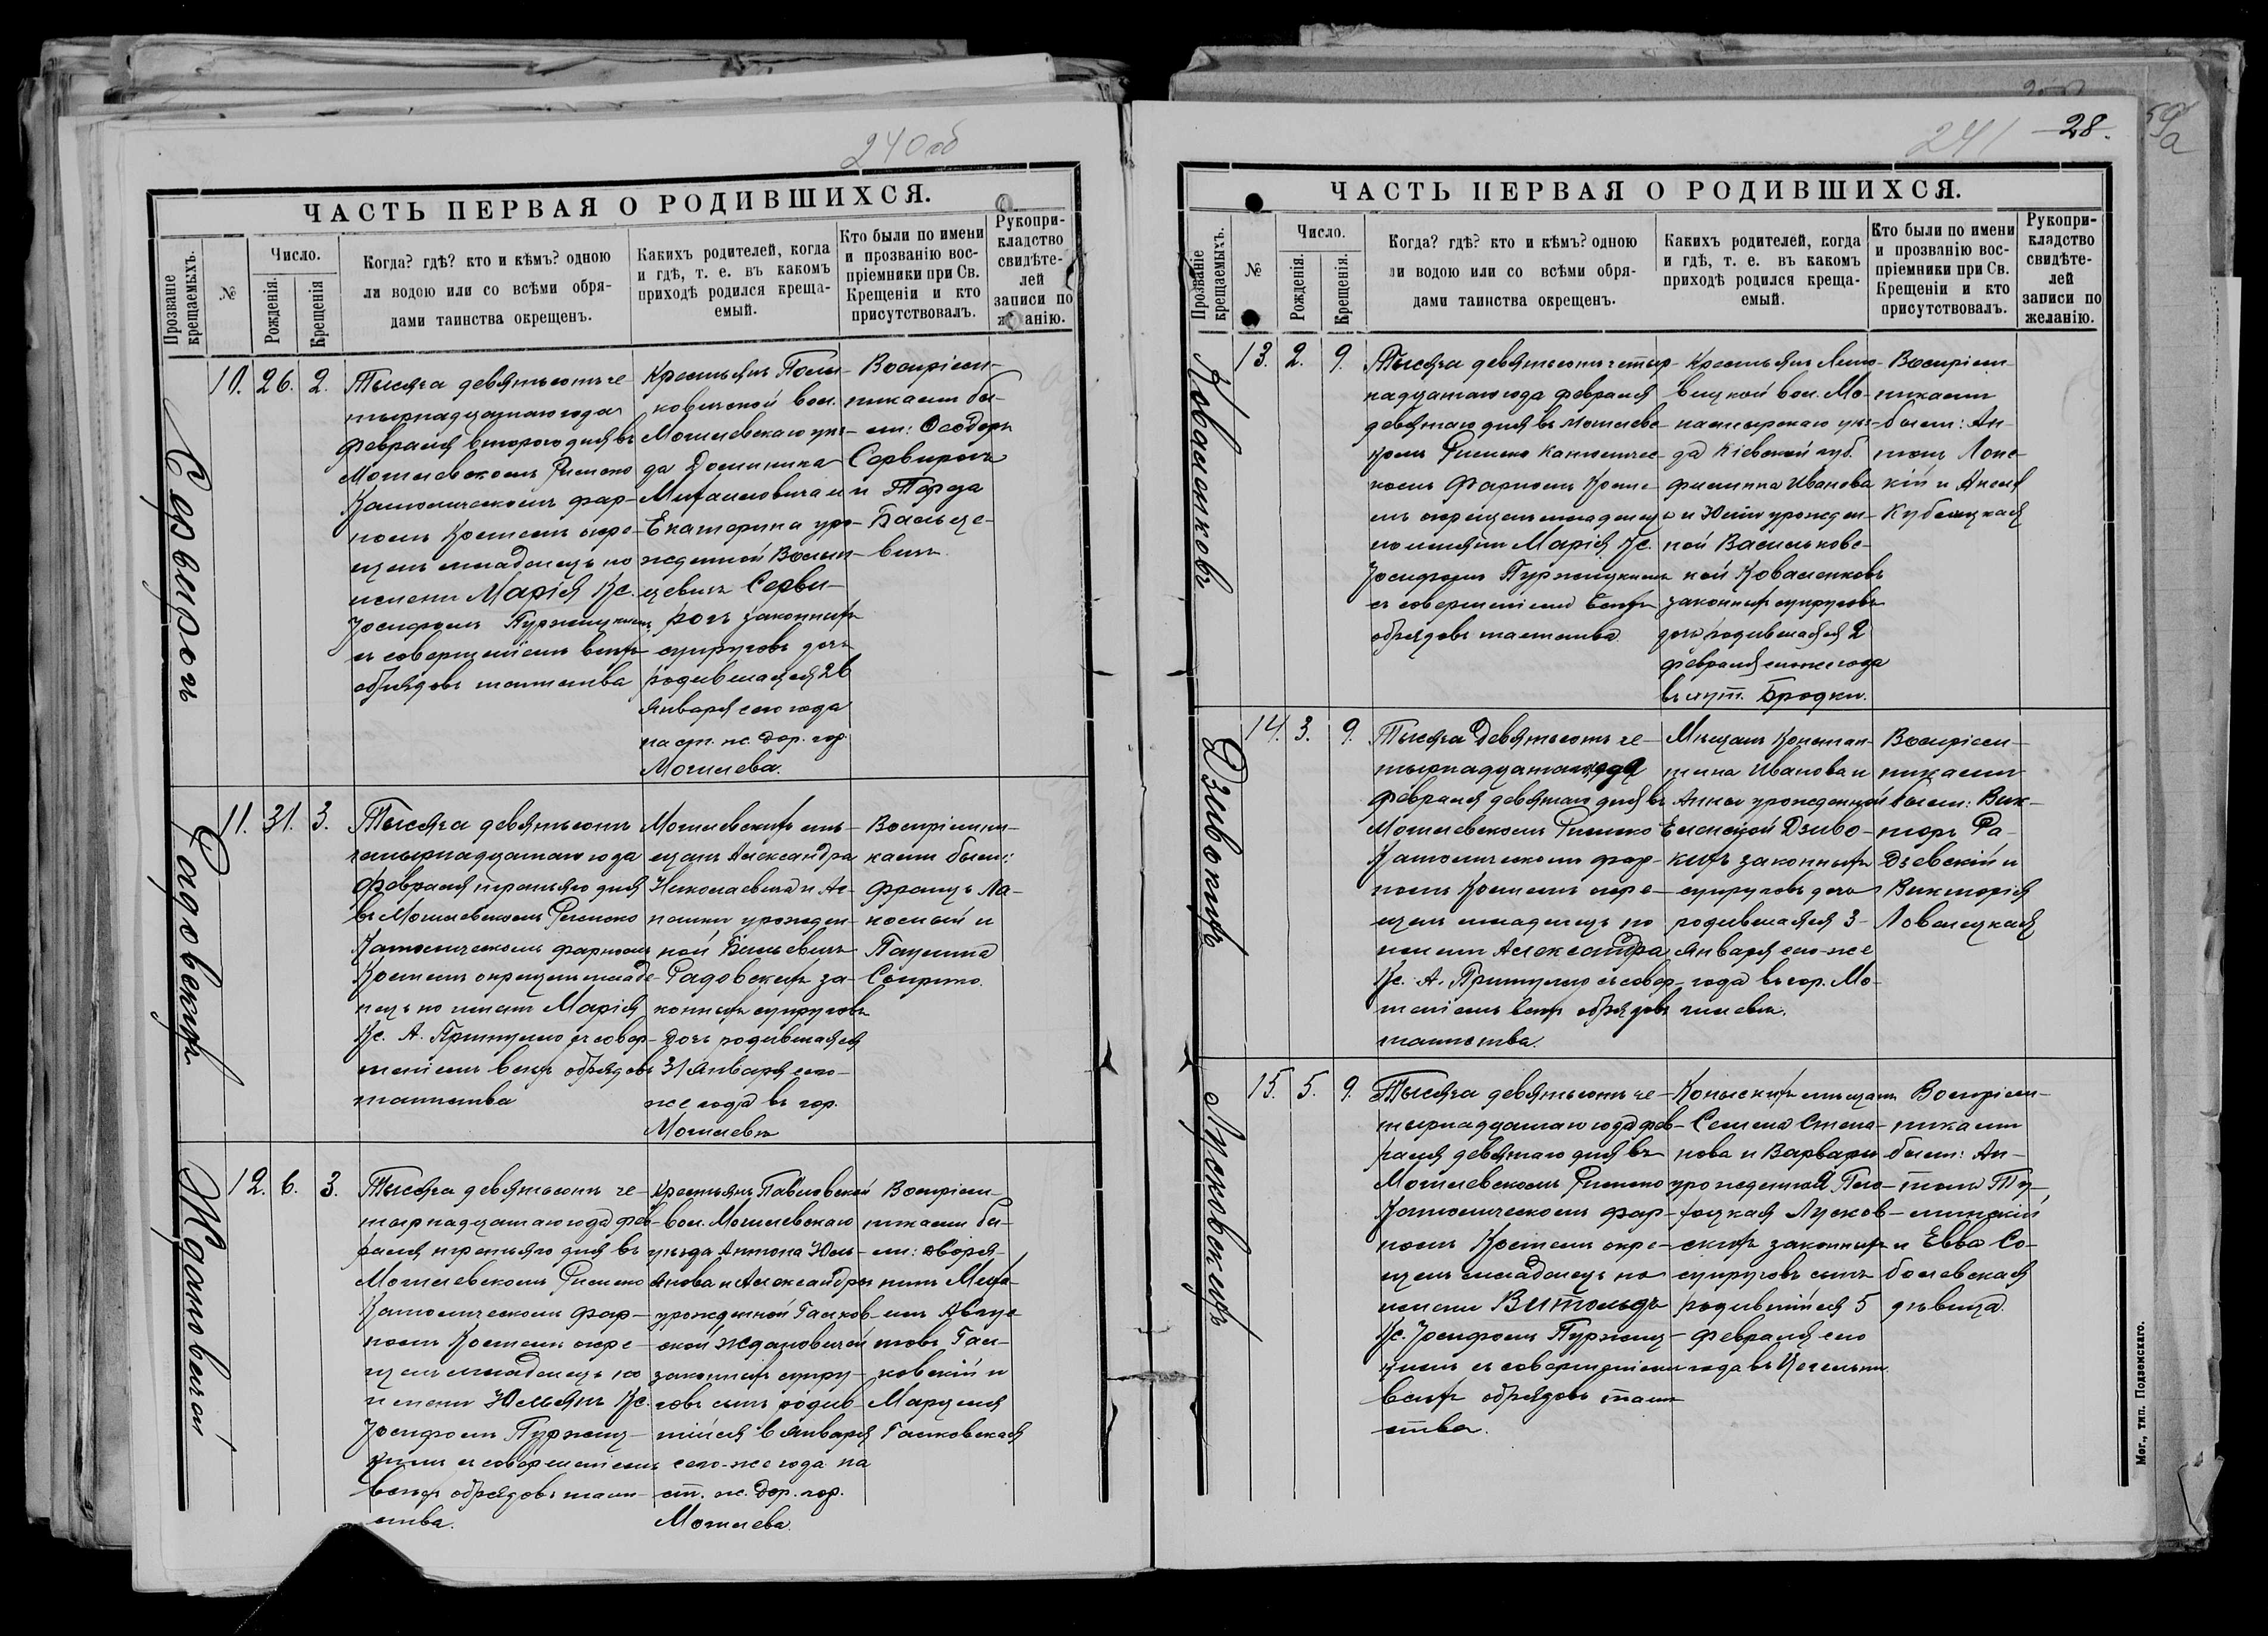 240 об
ЧАСТЬ ПЕРВАЯ О РОДИВШИХСЯ.
Прозваніе крещаемыхъ.
№
Число.
Рожденія.
Крещенія
Когда? гдѣ? кто и кѣмъ? одною
ли водою или со всѣми обря-
дами таинства окрещенъ.
Какихъ родителей, когда
и гдѣ, т. е. въ какомъ
приходѣ родился креща-
емый.
Кто были по имени
и прозванію вос-
пріемники при Св.
Крещеніи и кто
присутствовалъ.
Рукопри-
кладство
свидѣте-
лей
записи по
желанію.
Сервирогъ
10. 26. 2.
Тысяча девятьсотъ че-
тырнадцатаго года
февраля второго дня въ
Могилевскомъ Римско
Католическомъ фар-
номъ Костелѣ окре-
щенъ младенецъ по
имени Марія Кс.
Іосифомъ Пуржицкимъ
съ совершеніемъ всѣхъ
обрядовъ таинства
Крестьянъ Полы-
ковичской вол.
Могилевскаго уѣз-
да Доминика
Михайловича и
Екатерины уро-
жденной Волын-
цевичъ Серви-
рогъ законныхъ
супруговъ дочь
родившаяся 26
Января сего года
на ст. ж. дор. гор.
Могилева.
Воспріем-
никами бы-
ли: Ѳеодоръ
Сервирогъ
и Текла
Бальце-
вичъ
Радовскихъ
11. 31. 3.
Тысяча девятьсотъ
четырнадцатаго года
Февраля третьяго дня
въ Могилевскомъ Римско
Католическомъ фарномъ
Костелѣ окрещенъ младе-
нецъ по имени Марія
Кс. А. Пришумо съ совер-
шеніемъ всѣхъ обрядовъ
таинства
Могилевскихъ мѣ-
щанъ Александра
Николаевича и Ан-
тонины урожден-
ной Бѣльевичъ
Радовскихъ за-
конныхъ супруговъ
дочь родившаяся
31 Января сего-
же года въ гор.
Могилевѣ
Воспріемни-
ками были:
Францъ
и
Паулина
Ждановичей
12. 6. 3.
Тысяча девятьсотъ че-
тырнадцатаго года фев-
раля третьяго дня въ
Могилевскомъ Римско
Католическомъ фар-
номъ Костелѣ окре-
щенъ младенецъ по
имени Юльянъ Кс.
Іосифомъ Пуржиц-
кимъ съ совершеніемъ
всѣхъ обрядовъ таин-
ства.
Крестьянъ Павловской
вол. Могилевскаго
уѣзда Антона Юль-
янова и Александры
урожденной Галков-
ской Ждановичей
законныхъ супру-
говъ сынъ родив-
шійся 6 Января
сего-же года на
ст. ж. дор. гор.
Могилева.
Воспріем-
никами бы-
ли: дворя-
нинъ Миха-
илъ Авгус-
товъ Гал-
ковскій и
Марцеля
Галковская
241 28.
ЧАСТЬ ПЕРВАЯ О РОДИВШИХСЯ.
Прозваніе крещаемыхъ.
№
Число.
Рожденія.
Крещенія.
Когда? гдѣ? кто и кѣмъ? одною
ли водою или со всѣми обря-
дами таинства окрещенъ.
Какихъ родителей, когда
и гдѣ, т. е. въ какомъ
приходѣ родился креща-
емый.
Кто были по имени
и прозванію вос-
пріемники при Св.
Крещеніи и кто
присутствовалъ.
Рукопри-
кладство
свидѣте-
лей
записи по
желанію.
Коваленковъ
13. 2. 9.
Тысяча девятьсотъ четыр-
надцатаго года февраля
девятаго дня въ Могилевс-
комъ Римско Католичес-
комъ Фарномъ Косте-
лѣ окрещенъ младенецъ
по имени Марія Кс.
Іосифомъ Пуржицкимъ
съ совершеніемъ всѣхъ
обрядовъ таинства
Крестьянъ
вецкой вол.
уѣз-
да Кіевской губ.
Филиппа Иванова
и Юліи урожден-
ной Васильковс-
кой Коваленковъ
законныхъ супруговъ
дочь родившаяся 2
февраля сего же года
въ Бродки.
Воспріем-
никами
были: Ан-
тонъ
и Анеля
Кубицкая
Дзивокихъ
14. 3. 9.
Тысяча девятьсотъ че-
тырнадцатаго года
февраля девятаго дня въ
Могилевскомъ Римско
Католическомъ фар-
номъ Костелѣ окре-
щенъ младенецъ по
имени Александра
Кс. А. Пришумо съ совер-
шеніемъ всѣхъ обрядовъ
таинства.
Мѣщанъ Констан-
тина Иванова и
Анны урожденной
Дзиво-
кихъ законныхъ
супруговъ дочь
родившаяся 3
января сего-же
года въ гор. Мо-
гилевѣ.
Воспріем-
никами
были: Вик-
торъ Ра-
дзевскій и
Викторія
Ловецкая
Лусковскихъ
15. 5. 9.
Тысяча девятьсотъ че-
тырнадцатаго года фев-
раля девятаго дня въ
Могилевскомъ Римско
Католическомъ фар-
номъ Костелѣ окре-
щенъ младенецъ по
имени Витольдъ
Кс. Іосифомъ Пуржиц-
кимъ съ совершеніемъ
всѣхъ обрядовъ таин-
ства.
Копыскихъ мѣщанъ
Семена Степа-
нова и Варвары
урожденной
Лусков-
скихъ законныхъ
супруговъ сынъ
родившійся 5
февраля сего
года въ
Воспріем-
никами
были: Ан-
тонъ
и Евва Со-
болевская
дѣвица.
Мог., тип. Подземскаго.